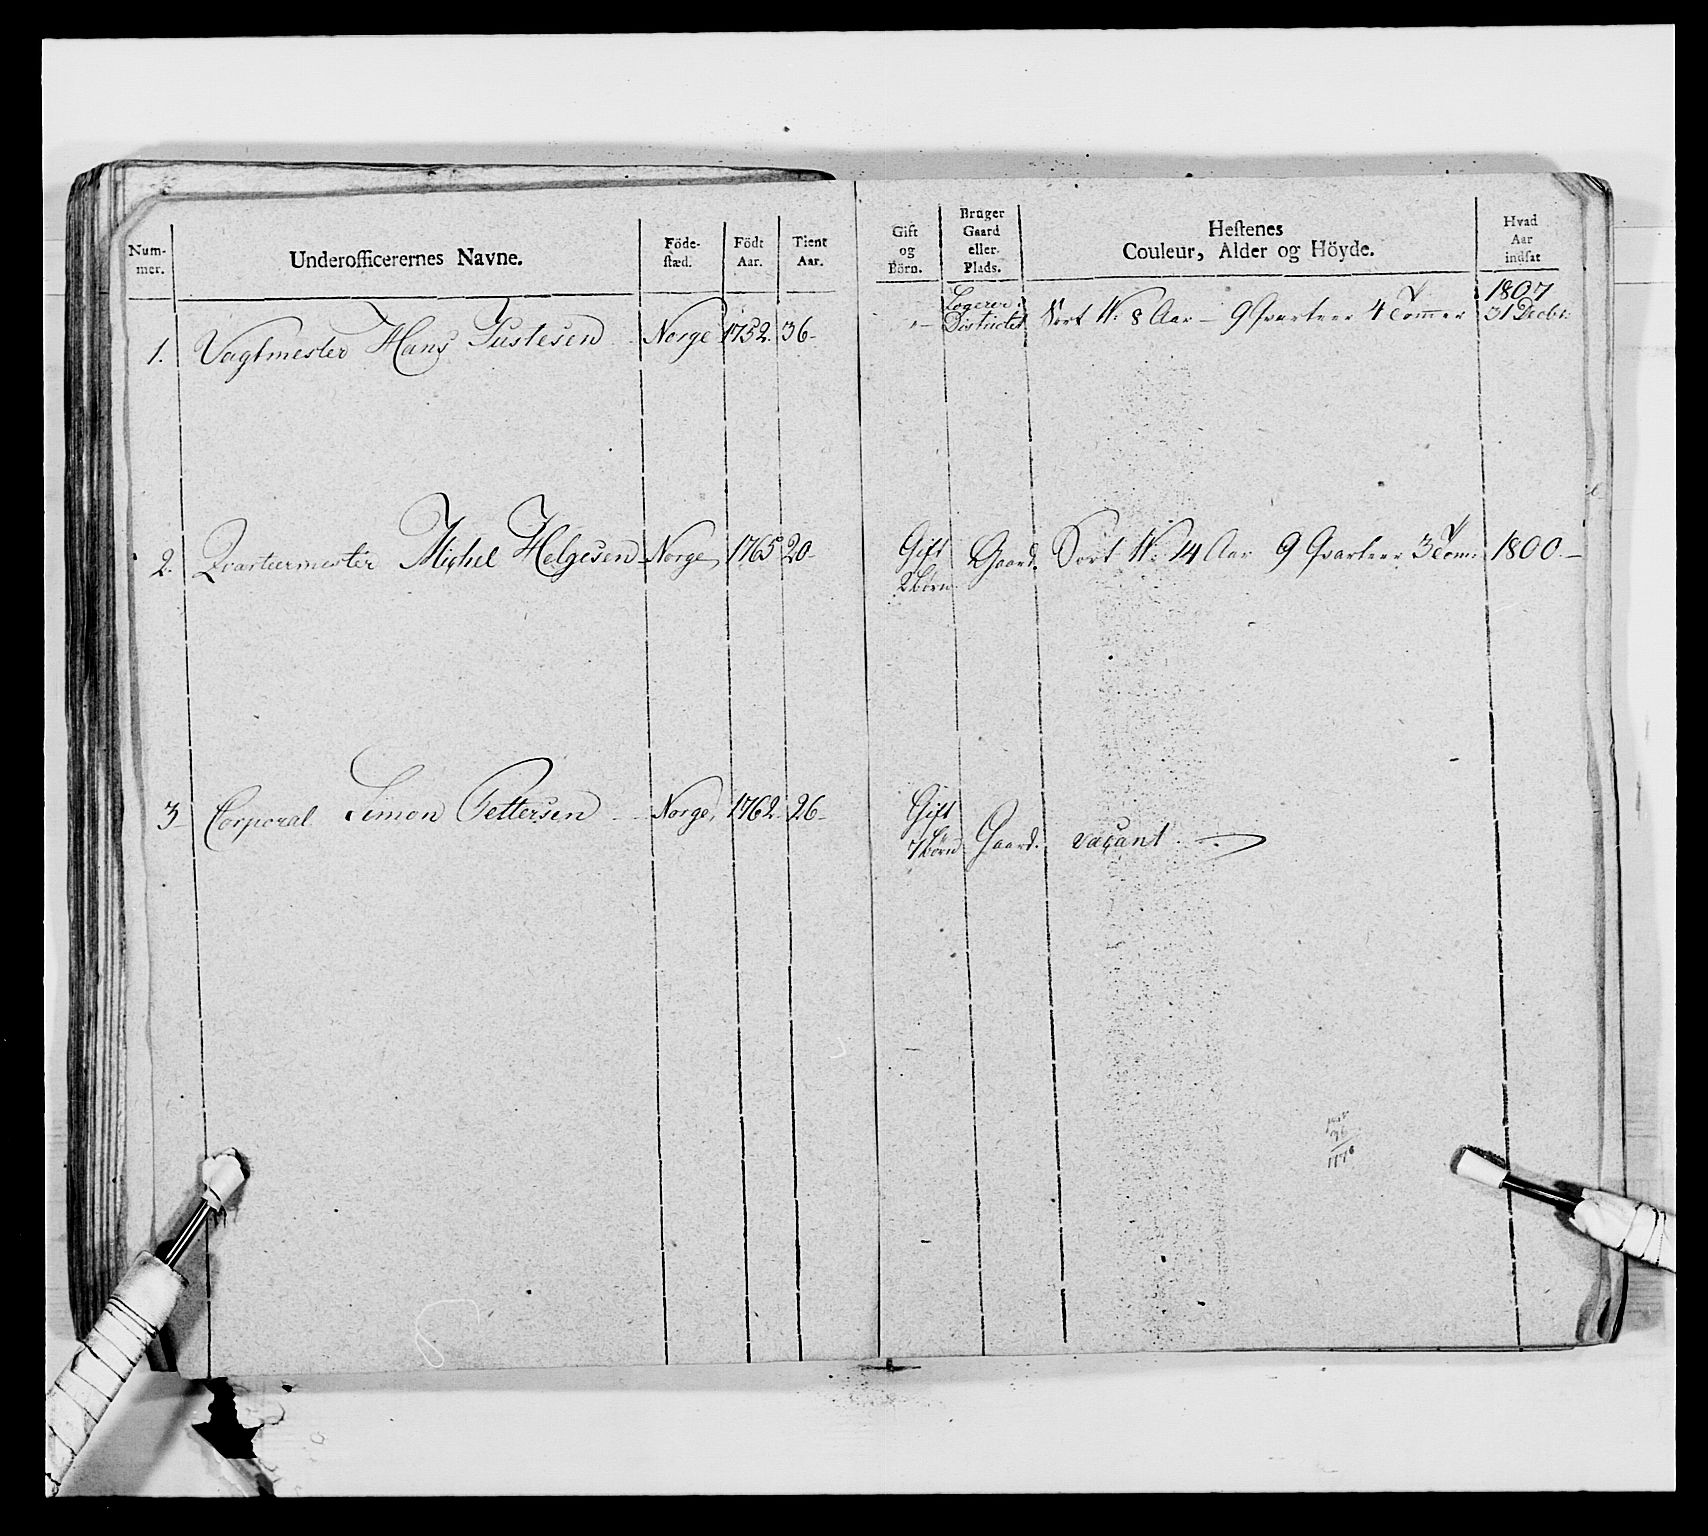 Num- Underofficerernes Navne. Föde- Födt Tient Gift Bruger Hestenes Hvad
mer. stæd. Aar. Aar. og Gaard Couleur, Alder og Höyde. Aar
Börn. eller indsat
Plads.
1. Vagtmester Hans Justesen Norge 1752. 36- „- Logerer i Sort W: 8 Aar - 9 Qvarteer 4 Tommer 1807
Districtet 31 Decbr:
2. Qvarteermester Michel Helgesen Norge 1765 20- Gift Gaard. Sort W: 14 Aar 9 Qvarteer 3 Tom: 1800.-
2 Börn
3- Corporal Simon Pettersen Norge, 1762. 26- Gift
7 Börn Gaard. vacant
36
1776